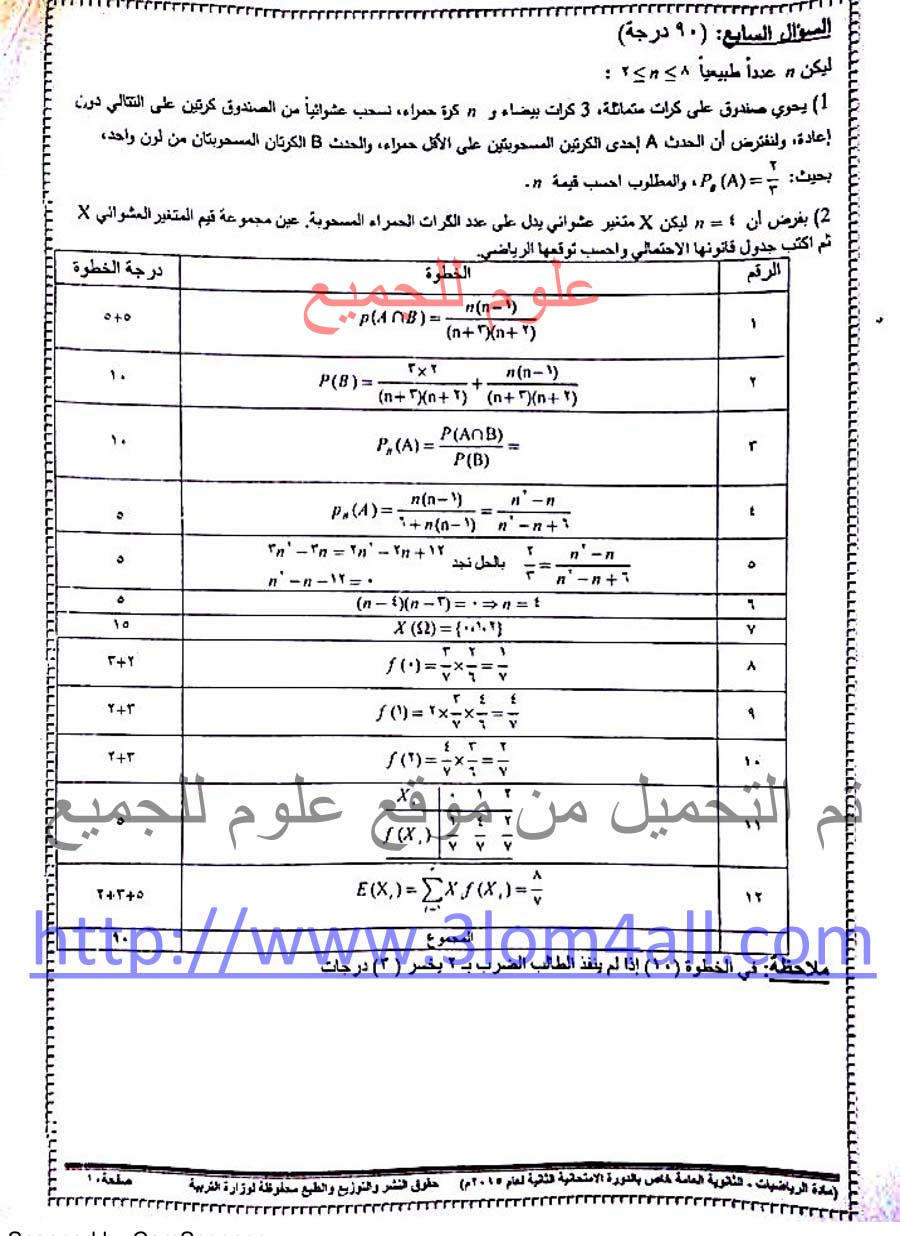 السؤال السابع: (٩٠ درجة)
ليكن n عدداً طبيعياً ٢ ≤ n ≤ ٨ :
1) يحوي صندوق على كرات متماثلة، 3 كرات بيضاء و n كرة حمراء، نسحب عشوائياً من الصندوق كرتين على التتالي دون
إعادة، ولنفترض أن الحدث A إحدى الكرتين المسحوبتين على الأقل حمراء، والحدث B الكرتان المسحوبتان من لون واحد،
بحيث: P_B (A) = ٢/٣ ، والمطلوب احسب قيمة n .
2) بفرض أن n = ٤ ليكن X متغير عشوائي يدل على عدد الكرات الحمراء المسحوبة. عين مجموعة قيم المتغير العشوائي X
ثم اكتب جدول قانونها الاحتمالي واحسب توقعها الرياضي.
الرقم الخطوة درجة الخطوة
علوم للجميع
١ p(A∩B) = n(n−١)/(n+٣)(n+٢) ٥+٥
٢ P(B) = ٣×٢/(n+٣)(n+٢) + n(n−١)/(n+٣)(n+٢) ١٠
٣ P_B(A) = P(A∩B)/P(B) = ١٠
٤ p_B(A) = n(n−١)/٦+n(n−١) = n٢−n/n٢−n+٦ ٥
٥ ٢/٣ = n٢−n/n٢−n+٦ بالحل نجد ٣n٢−٣n = ٢n٢−٢n+١٢ ٥
n٢−n−١٢=٠
٦ (n−٤)(n−٣)=٠ ⇒ n=٤ ٥
٧ X(Ω) = {٠،١،٢} ١٥
٨ f(٠) = ٣/٧×٢/٦ = ١/٧ ٣+٢
٩ f(١) = ٢×٣/٧×٤/٦ = ٤/٧ ٢+٣
١٠ f(٢) = ٤/٧×٣/٦ = ٢/٧ ٢+٣
١١ X_i ٠ ١ ٢ ٥
f(X_i) ١/٧ ٤/٧ ٢/٧
تم التحميل من موقع علوم للجميع
١٢ E(X_i) = ∑ X_i f(X_i) = ٨/٧ ٢+٣+٥
المجموع ٩٠
http://www.3lom4all.com
ملاحظة: في الخطوة (١٠) إذا لم ينفذ الطالب الضرب بـ ٢ يخسر (٣) درجات
(مادة الرياضيات - الثانوية العامة خاص بالدورة الامتحانية الثانية لعام ٢٠١٥م) حقوق النشر والتوزيع والطبع محفوظة لوزارة التربية صفحة ١٠